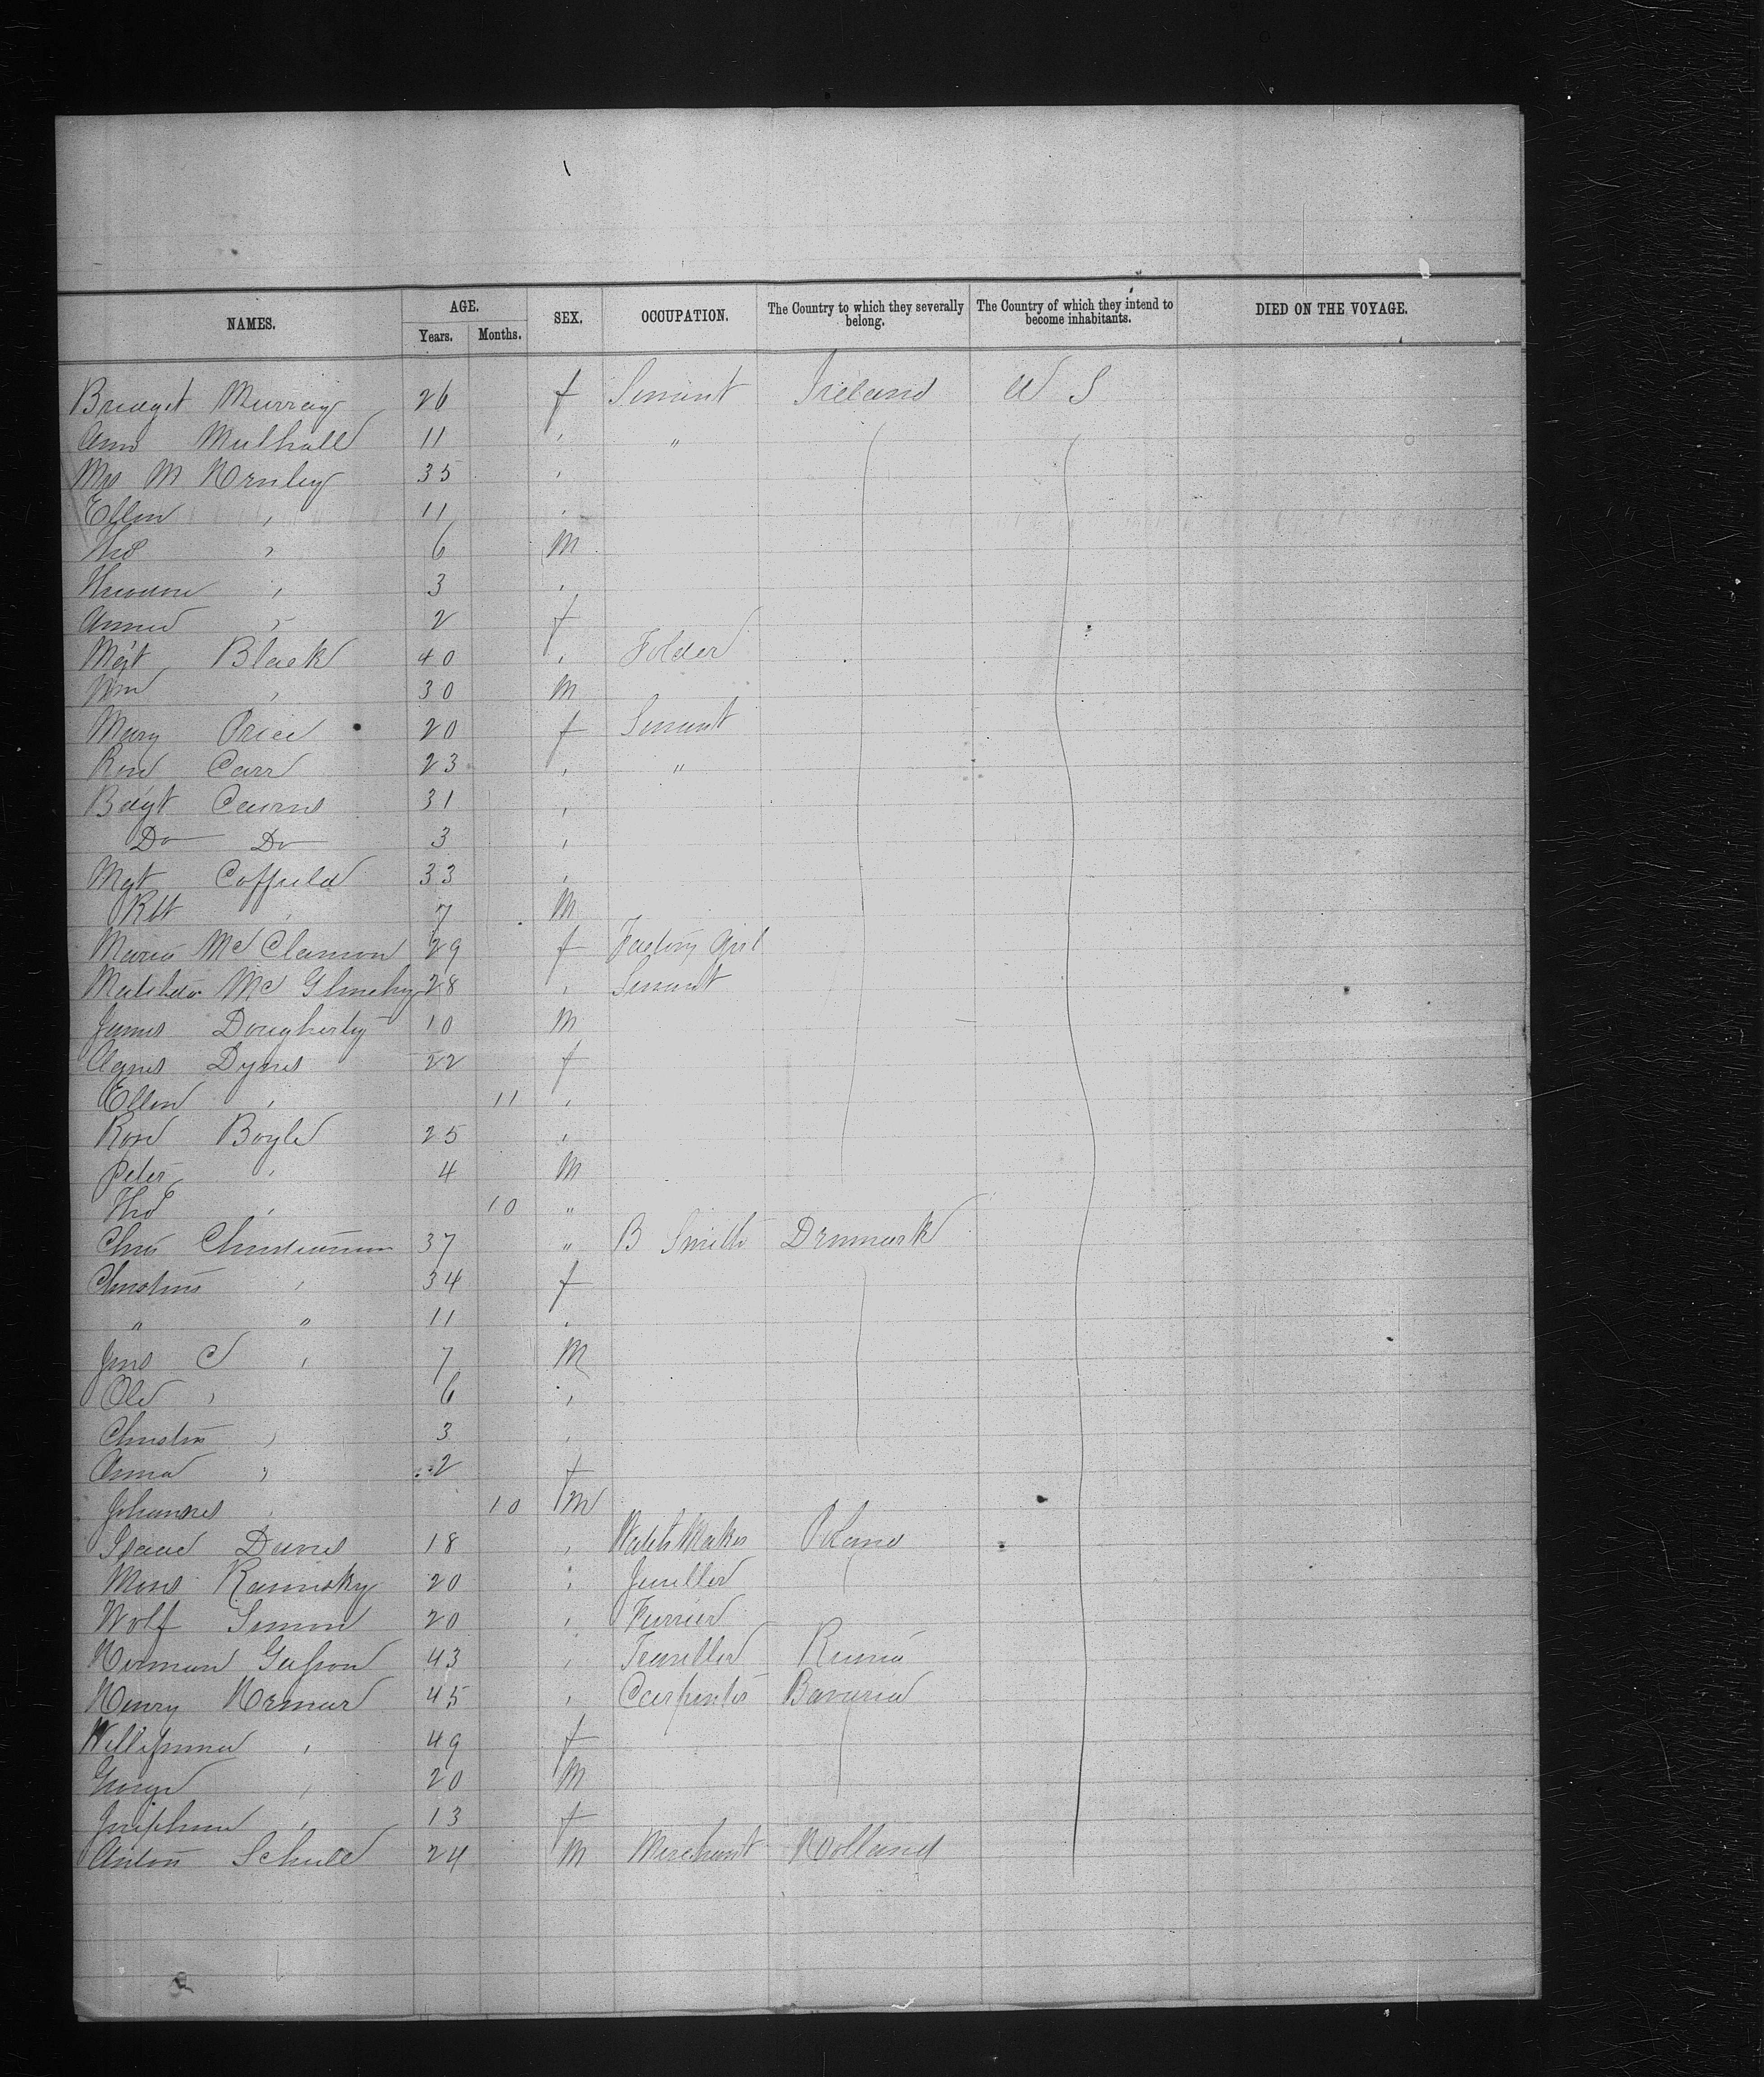 NAMES. AGE. SEX. OCCUPATION. The Country to which they severally belong. The Country of which they intend to become inhabitants. DIED ON THE VOYAGE.
Years. Months.
Bridget Murray 26 f Servant Ireland U S
Ann Mulhall 11 , "
Mrs M Hornley 35 ,
Ellen , 11 ,
Thos , 6 M
, 3 ,
Annie , 2 f
Mgt Black 40 , Folder
Wm , 30 M
Mary Price 20 f Servant
Rose Carr 23 , "
Bdgt Cairns 31 ,
Do Do 3 ,
Mgt Coffield 33 ,
Rbt , 7 M
Maria Mc Clamon 29 f Factory Girl
Matilda Mc Glinchy 28 , Servant
James Dougherty 10 M
Agnes Dynes 22 f
Ellen , 11 ,
Rose Boyle 25 ,
Peter , 4 M
Thos , 10 "
Chris Christiansen 37 " B Smith Denmark
Christine , 34 f
" " 11 ,
Jens C , 7 M
Ole , 6 ,
Christen , 3 ,
Anna , 2 f
Johannes , 10 M
Isaac Davis 18 , Watch Maker Poland
Moses Kaminsky 20 , Jeweller
Wolf Simon 20 , Furrier
Herman 43 , Traveller Russia
Henry 45 , Carpenter Bavaria
, 49 f
George , 20 M
Josephine , 13 f
Anton Schull 24 M Merchant Holland